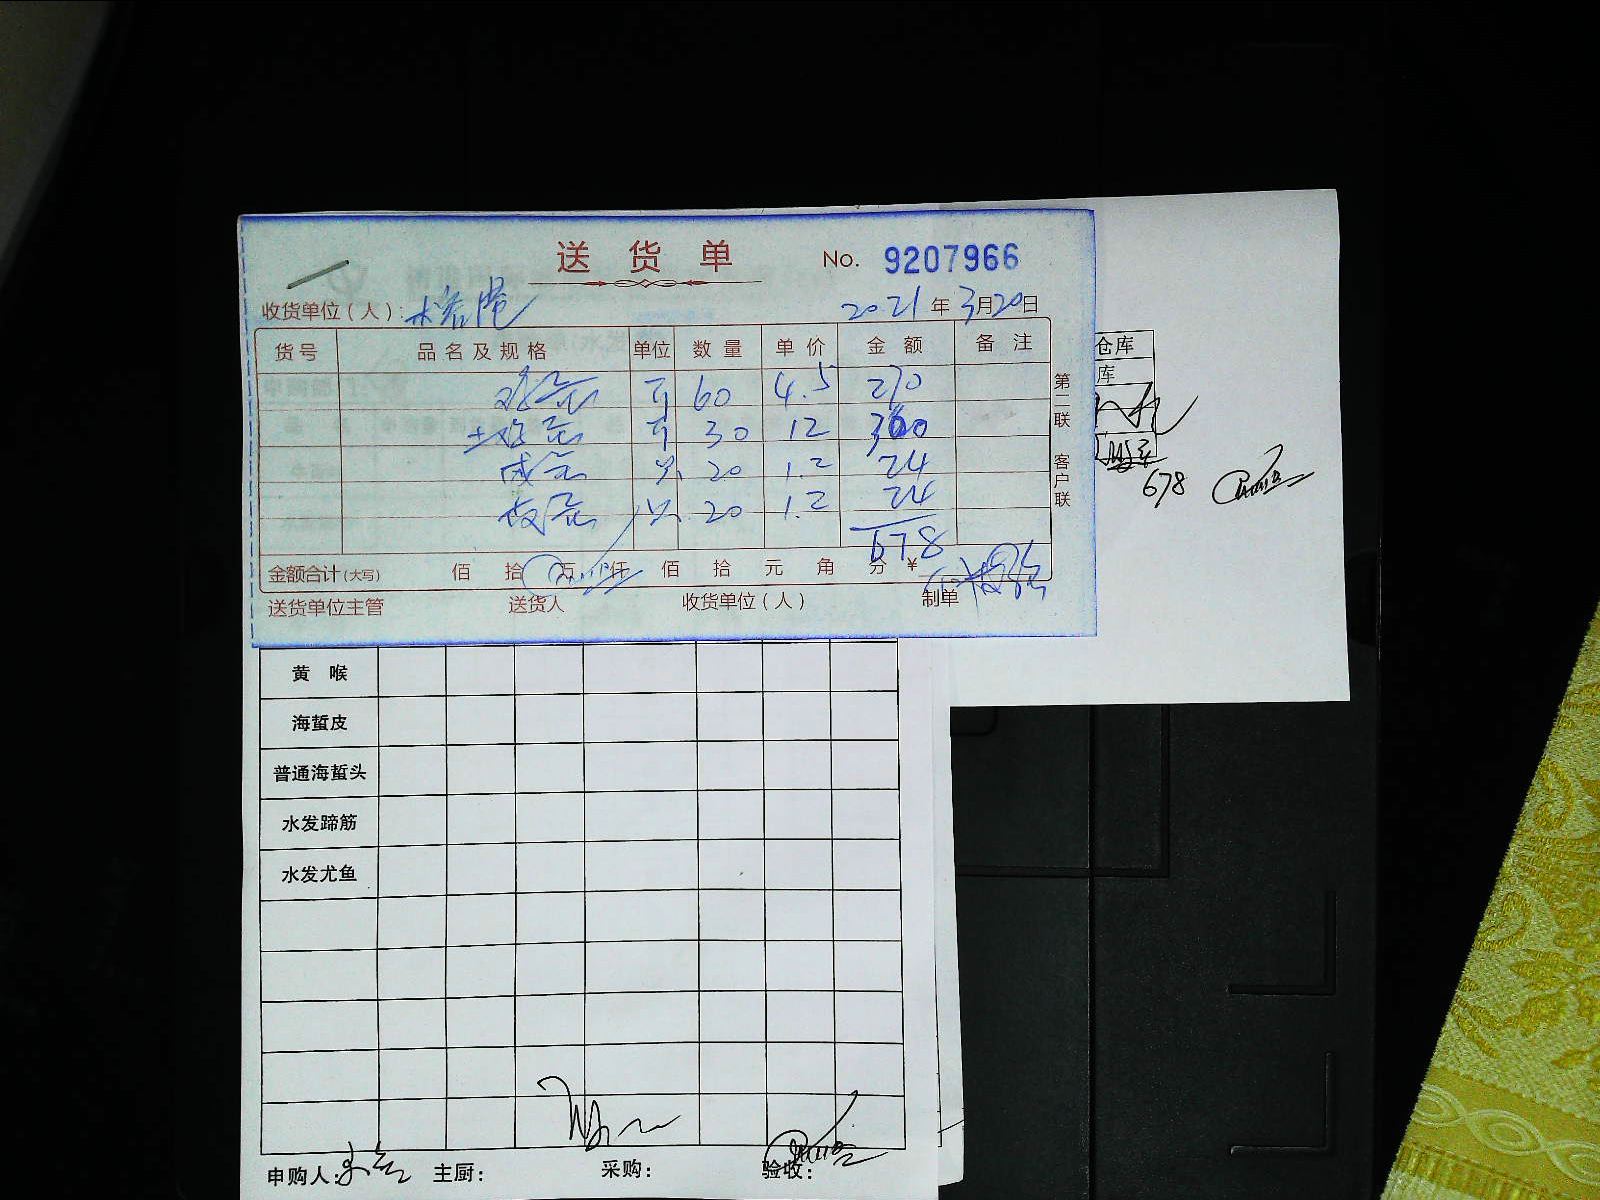 送货单 No. 9207966
收货单位（人）： 2021年3月20日
货号 品名及规格 单位 数量 单价 金额 备注
鸡蛋 斤 60 4.5 270
土鸡蛋 斤 30 12 360
咸蛋 只 20 1.2 24
皮蛋 只 20 1.2 24
678
金额合计(大写) 佰 拾 万 仟 佰 拾 元 角 分 ¥
送货单位主管 送货人 收货单位（人） 制单
第二联 客户联
仓库
库
678
黄喉
海蜇皮
普通海蜇头
水发蹄筋
水发尤鱼
申购人: 主厨: 采购: 验收: